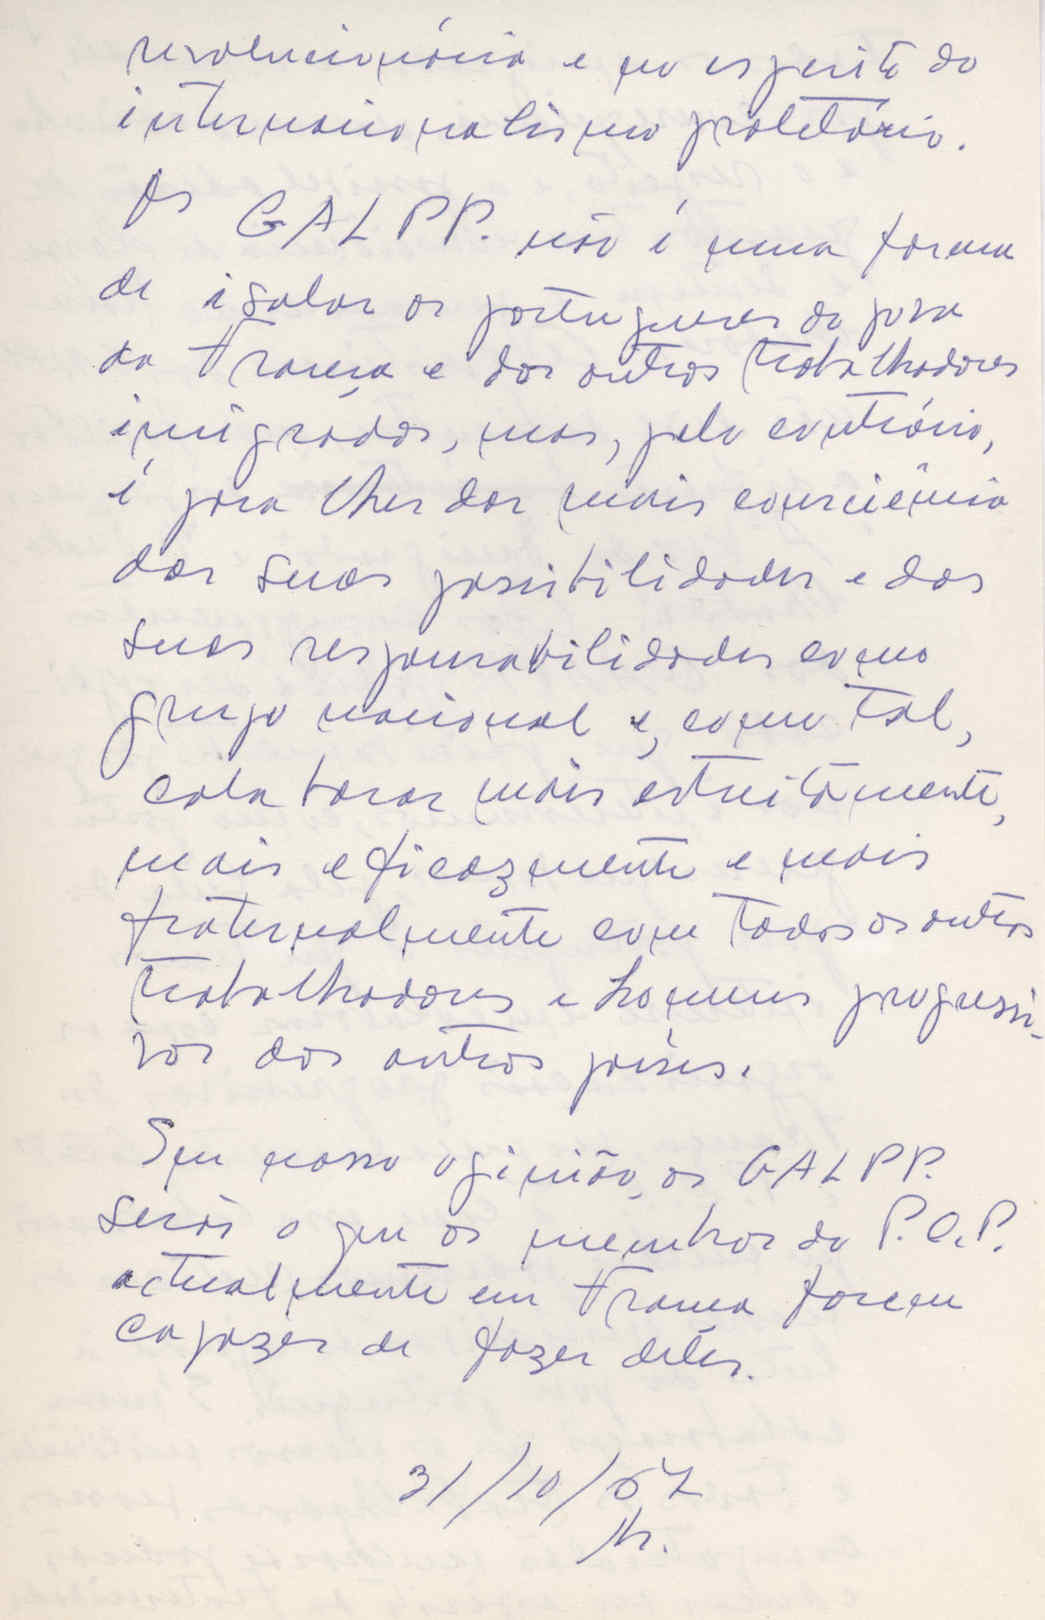 revolucionária e no espírito do
internacionalismo proletário.
Os GALPP. não é uma forma
de isolar os portugueses do povo
da França e dos outros trabalhadores
imigrados, mas, pelo contrário,
é para lhes dar mais consciência
das suas possibilidades e das
suas responsabilidades como
grupo nacional e, como tal,
colaborar mais estreitamente,
mais eficazmente e mais
fraternalmente com todos os outros
trabalhadores e homens progressi-
vos dos outros países.
Em nosso opinião, os GALPP.
serão o que os membros do P.C.P.
actualmente em França forem
capazes de fazer deles.
31/10/67